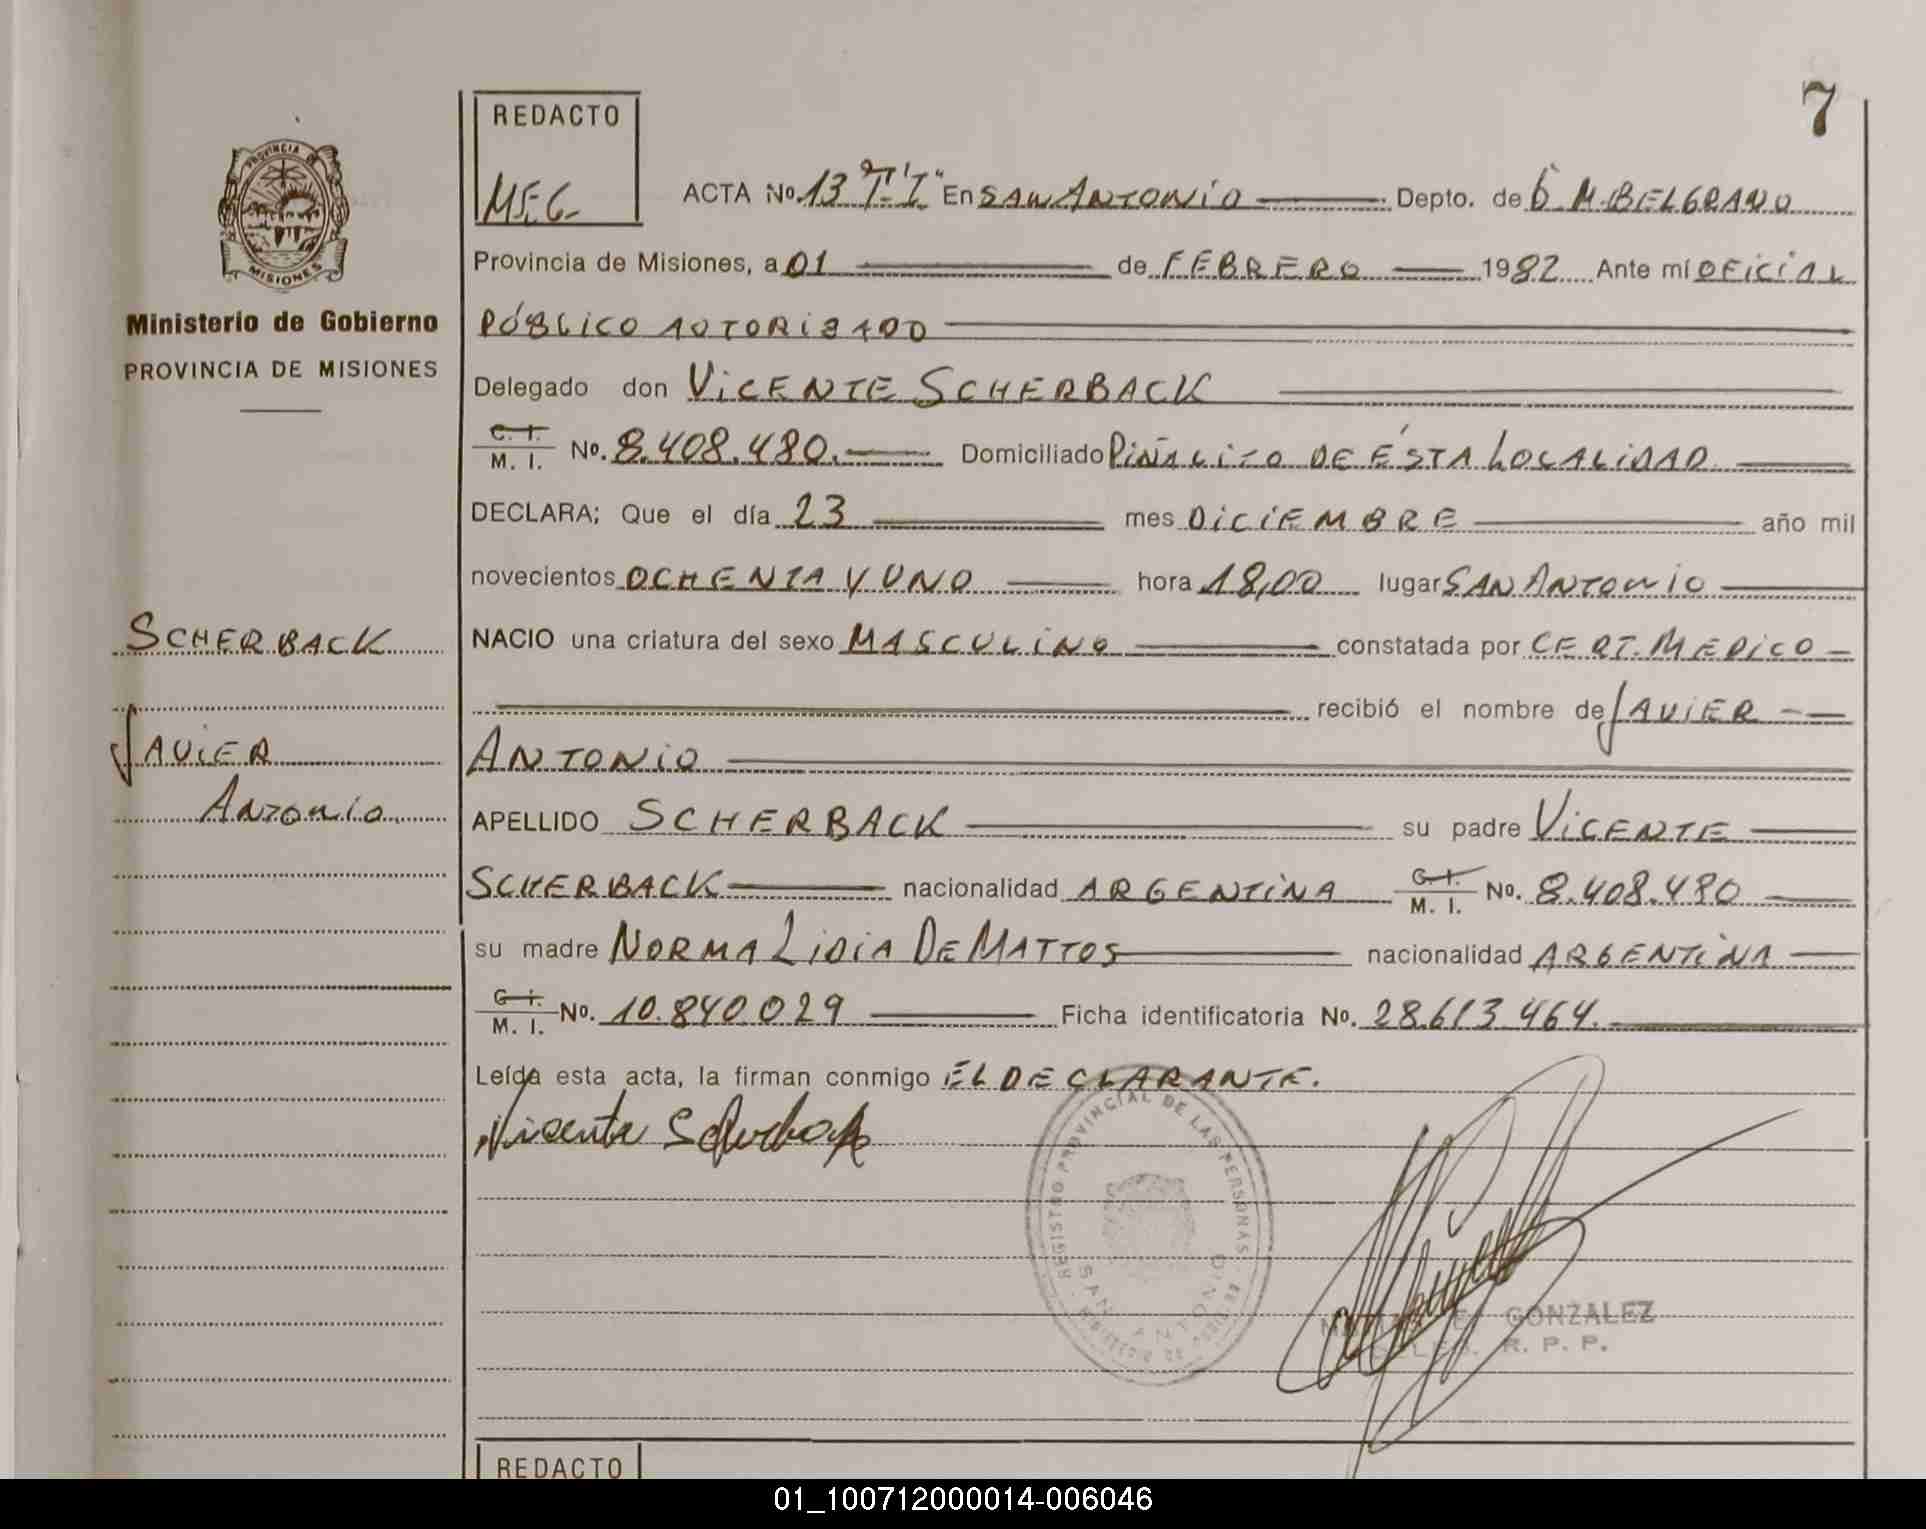 7
REDACTO
MEG.
PROVINCIA DE
MISIONES
Ministerio de Gobierno
PROVINCIA DE MISIONES
ACTA No. 13 "T.I" En SAN ANTONIO Depto. de G M. BELGRANO
Provincia de Misiones, a 01 de FEBRERO 1982 Ante mí OFICIAL
PÚBLICO AUTORIZADO
Delegado don VICENTE SCHERBACK
C. I.
M. I. No. 8.408.480. Domiciliado PIÑALITO DE ÉSTA LOCALIDAD
DECLARA; Que el día 23 mes DICIEMBRE año mil
novecientos OCHENTA Y UNO hora 18,00 lugar SAN ANTONIO
SCHERBACK
NACIO una criatura del sexo MASCULINO constatada por CERT. MEDICO
recibió el nombre de JAVIER
JAVIER
ANTONIO
ANTONIO
APELLIDO SCHERBACK su padre VICENTE
SCHERBACK nacionalidad ARGENTINA C. I. M. I. No. 8.408.480
su madre NORMA LIDIA DE MATTOS nacionalidad ARGENTINA
C. I.
M. I. No. 10.840.029 Ficha identificatoria No. 28.613.464.
Leída esta acta, la firman conmigo EL DECLARANTE.
Vicente Scherback
REGISTRO PROVINCIAL DE LAS PERSONAS
SAN ANTONIO
GONZALEZ
R. P. P.
REDACTO
01_100712000014-006046